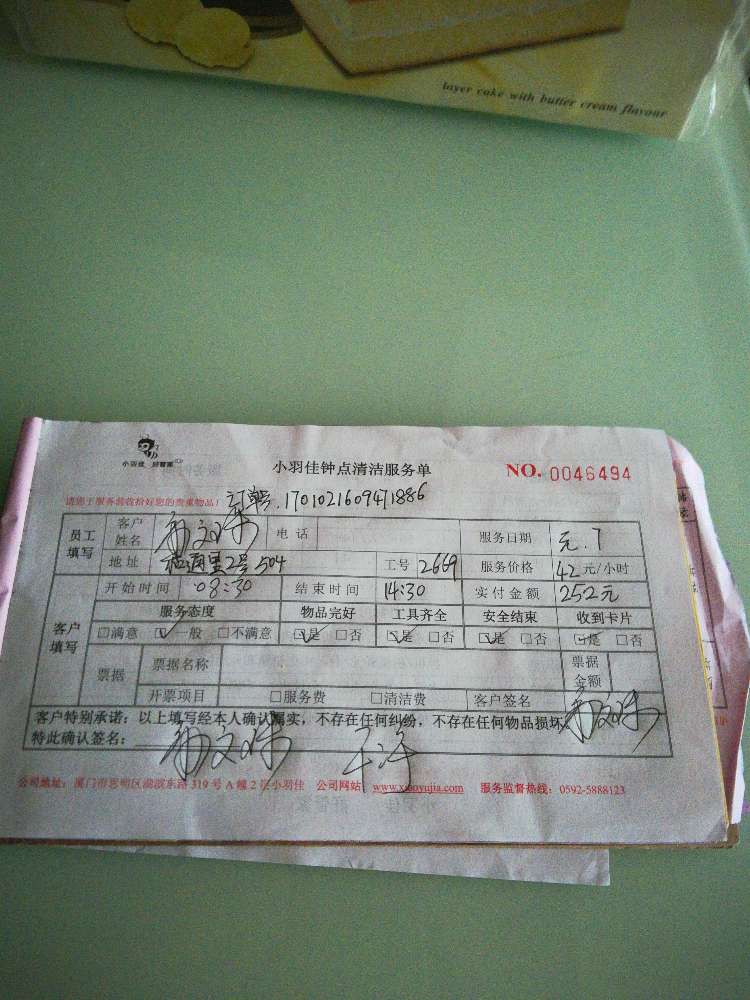 layer cake with butter cream flavour
小羽佳 好管家
小羽佳钟点清洁服务单
NO. 0046494
请您于服务前收拾好您的贵重物品!
订单:1701021609471886
员工填写 客户姓名 电话 服务日期 元.7
地址 2号504 工号 2669 服务价格 42元/小时
开始时间 08:30 结束时间 14:30 实付金额 252元
客户填写 服务态度 物品完好 工具齐全 安全结束 收到卡片
□满意 ☑一般 □不满意 ☑是 □否 ☑是 □否 ☑是 □否 ☑是 □否
票据 票据名称 票据金额
开票项目 □服务费 □清洁费 客户签名
客户特别承诺:以上填写经本人确认属实,不存在任何纠纷,不存在任何物品损坏。
特此确认签名: 干净
公司地址:厦门市思明区湖滨东路 319 号 A 幢 2 层小羽佳 公司网站:www.xiaoyujia.com 服务监督热线:0592-5888123